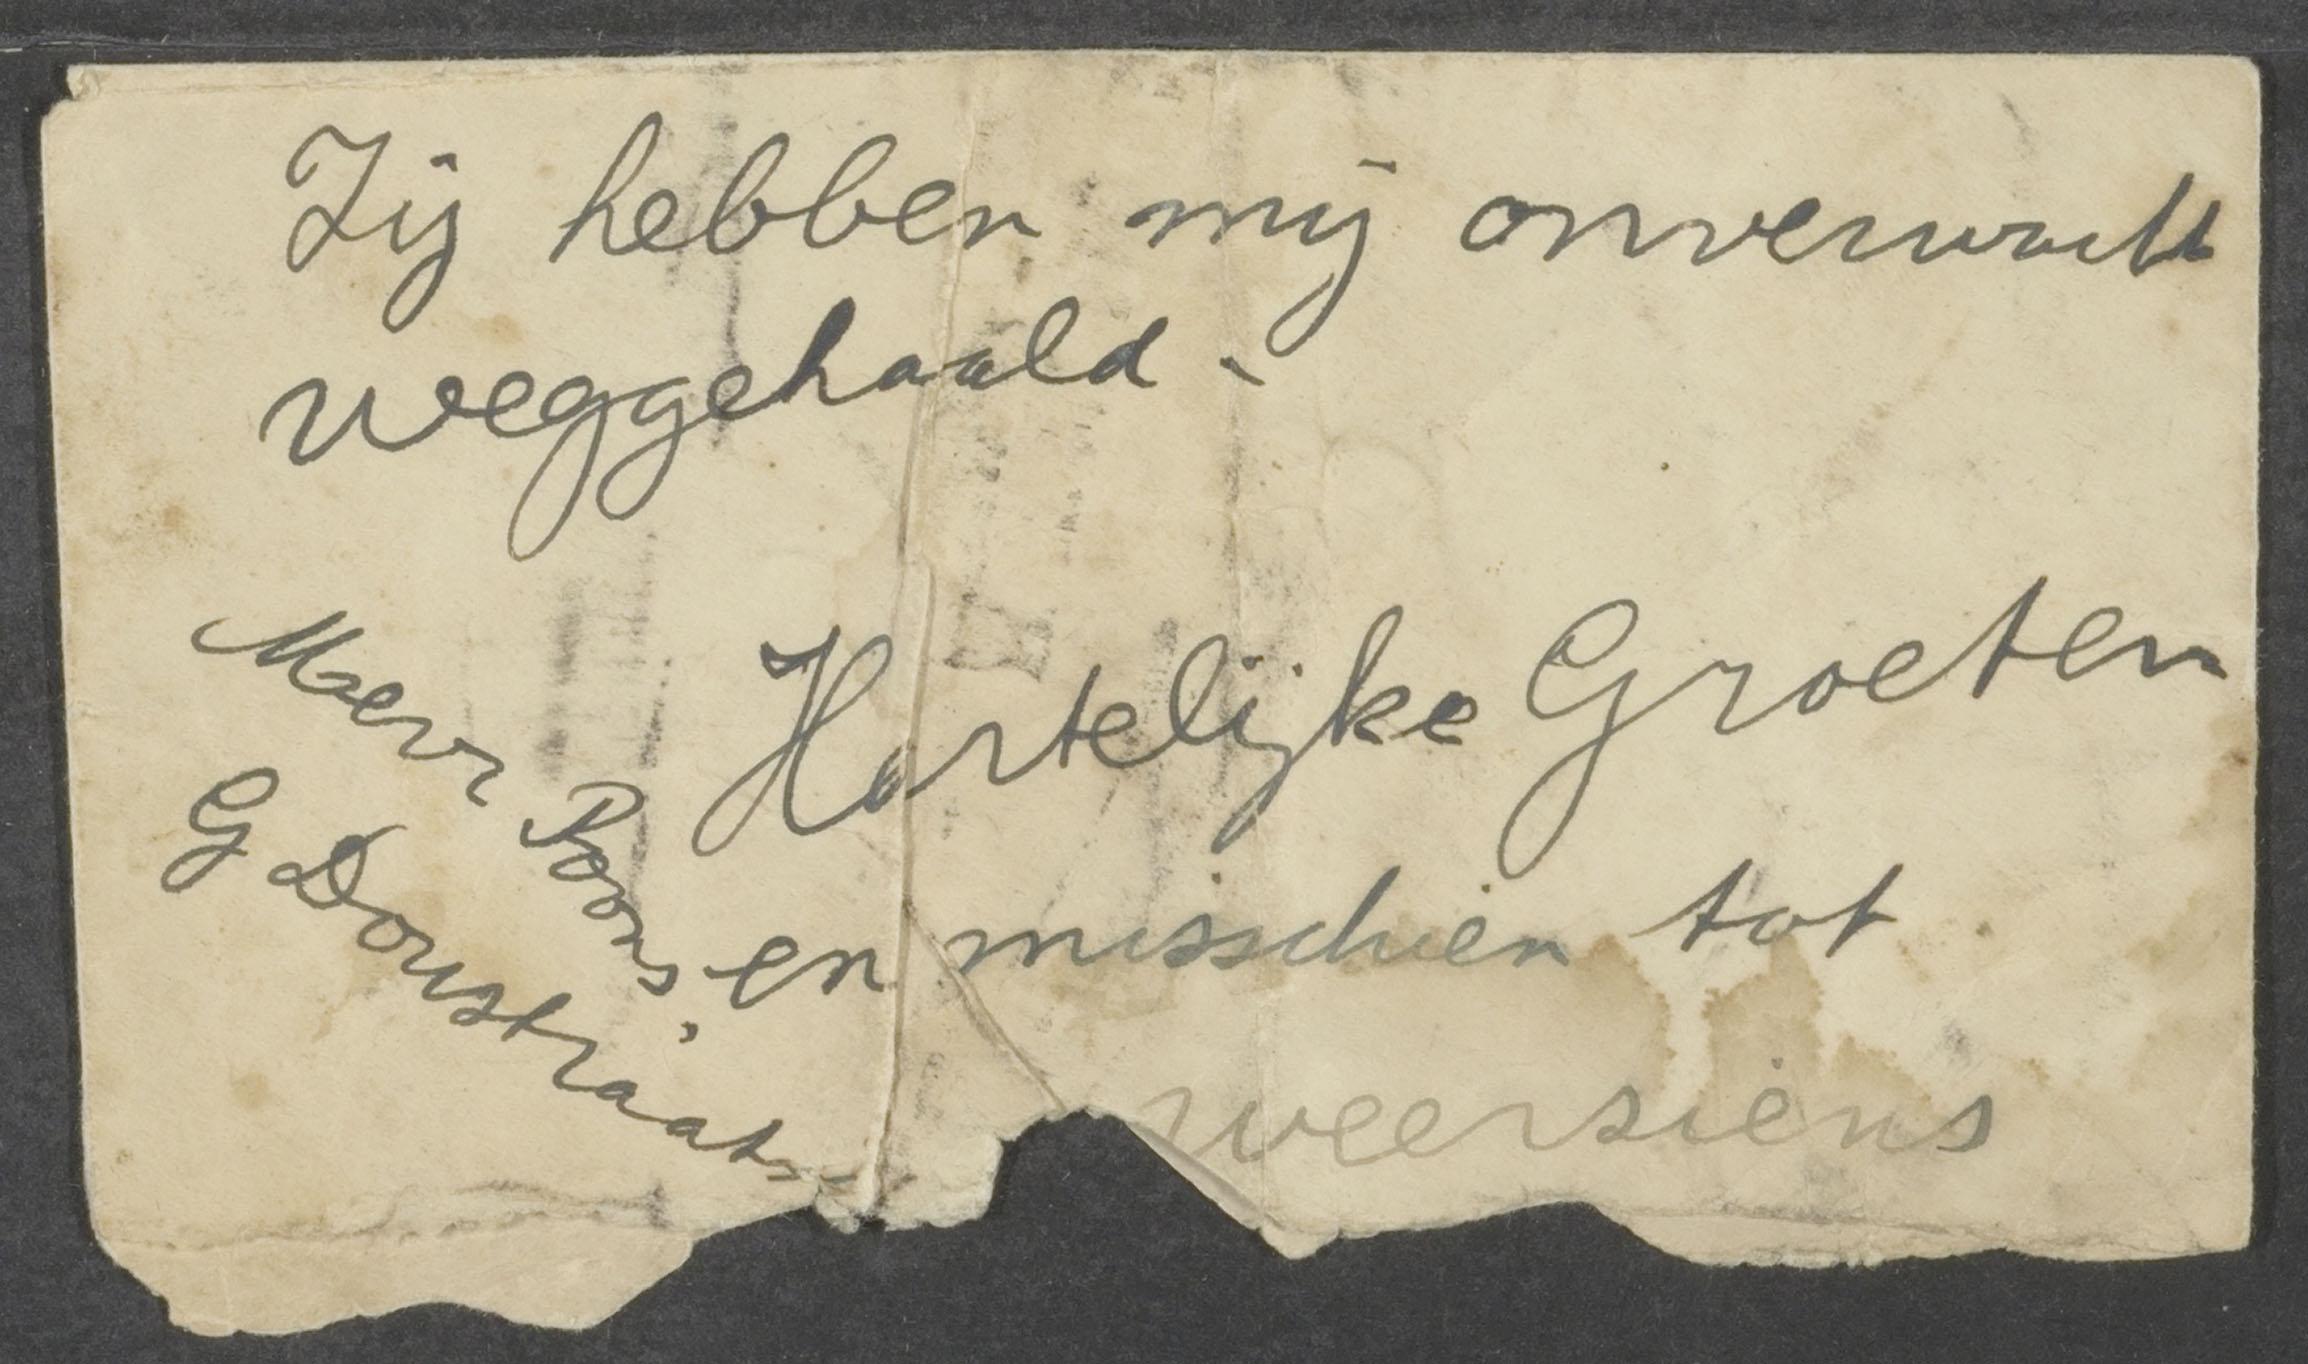 Zij hebben mij onverwacht
weggehaald.
Hartelijke Groeten
en misschien tot
weersiens
Mevr Poons,
G Doustraat